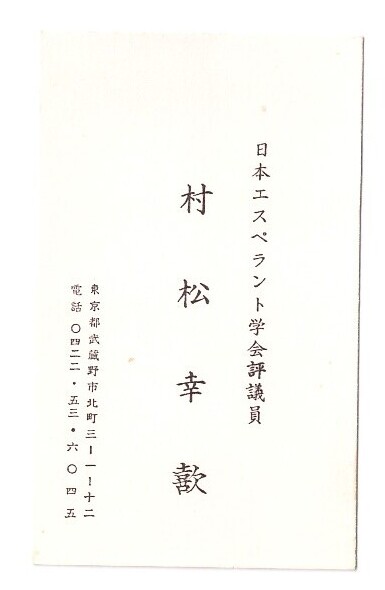 日本エスペラント学会評議員
村松幸歖
東京都武蔵野市北町三ー一ー十二
電話〇四二二・五三・六〇四五